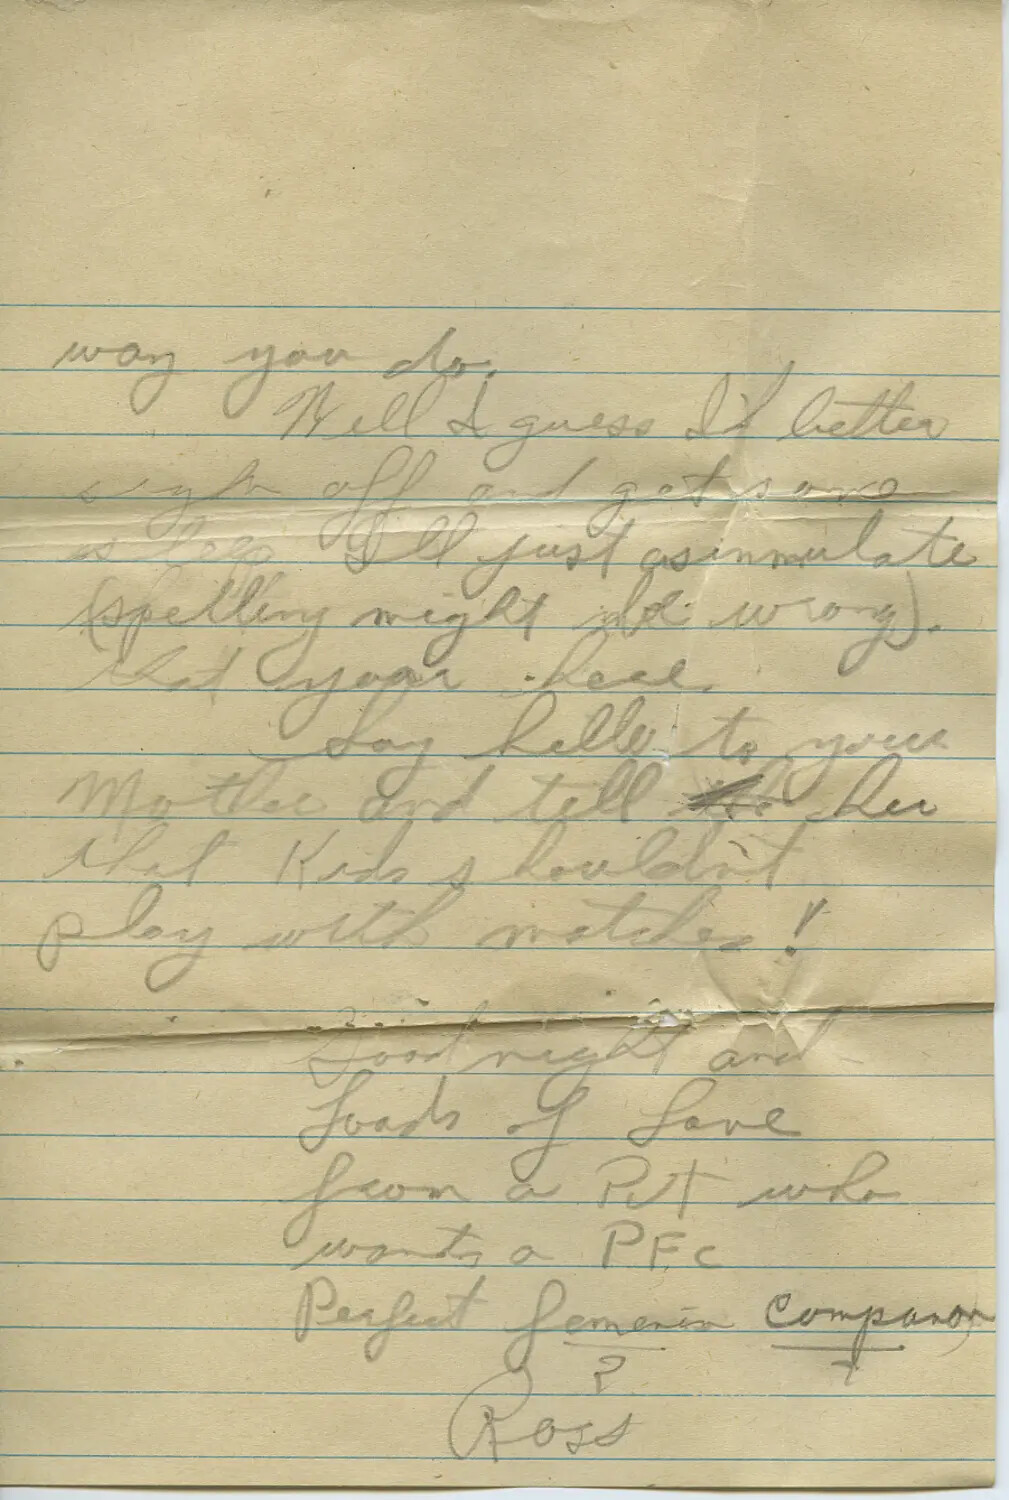 way you do.
Well I guess I'd better
sigh off and get some
sleep I'll just asinmulate
(spelling might be wrong).
that your here.
Say hello to your
Mother and tell her
that Kids shouldn't
play with matches!
Good night and
Loads of Love
from a Pvt who
wants a PFc
Perfect femenin Companon
?
Ross